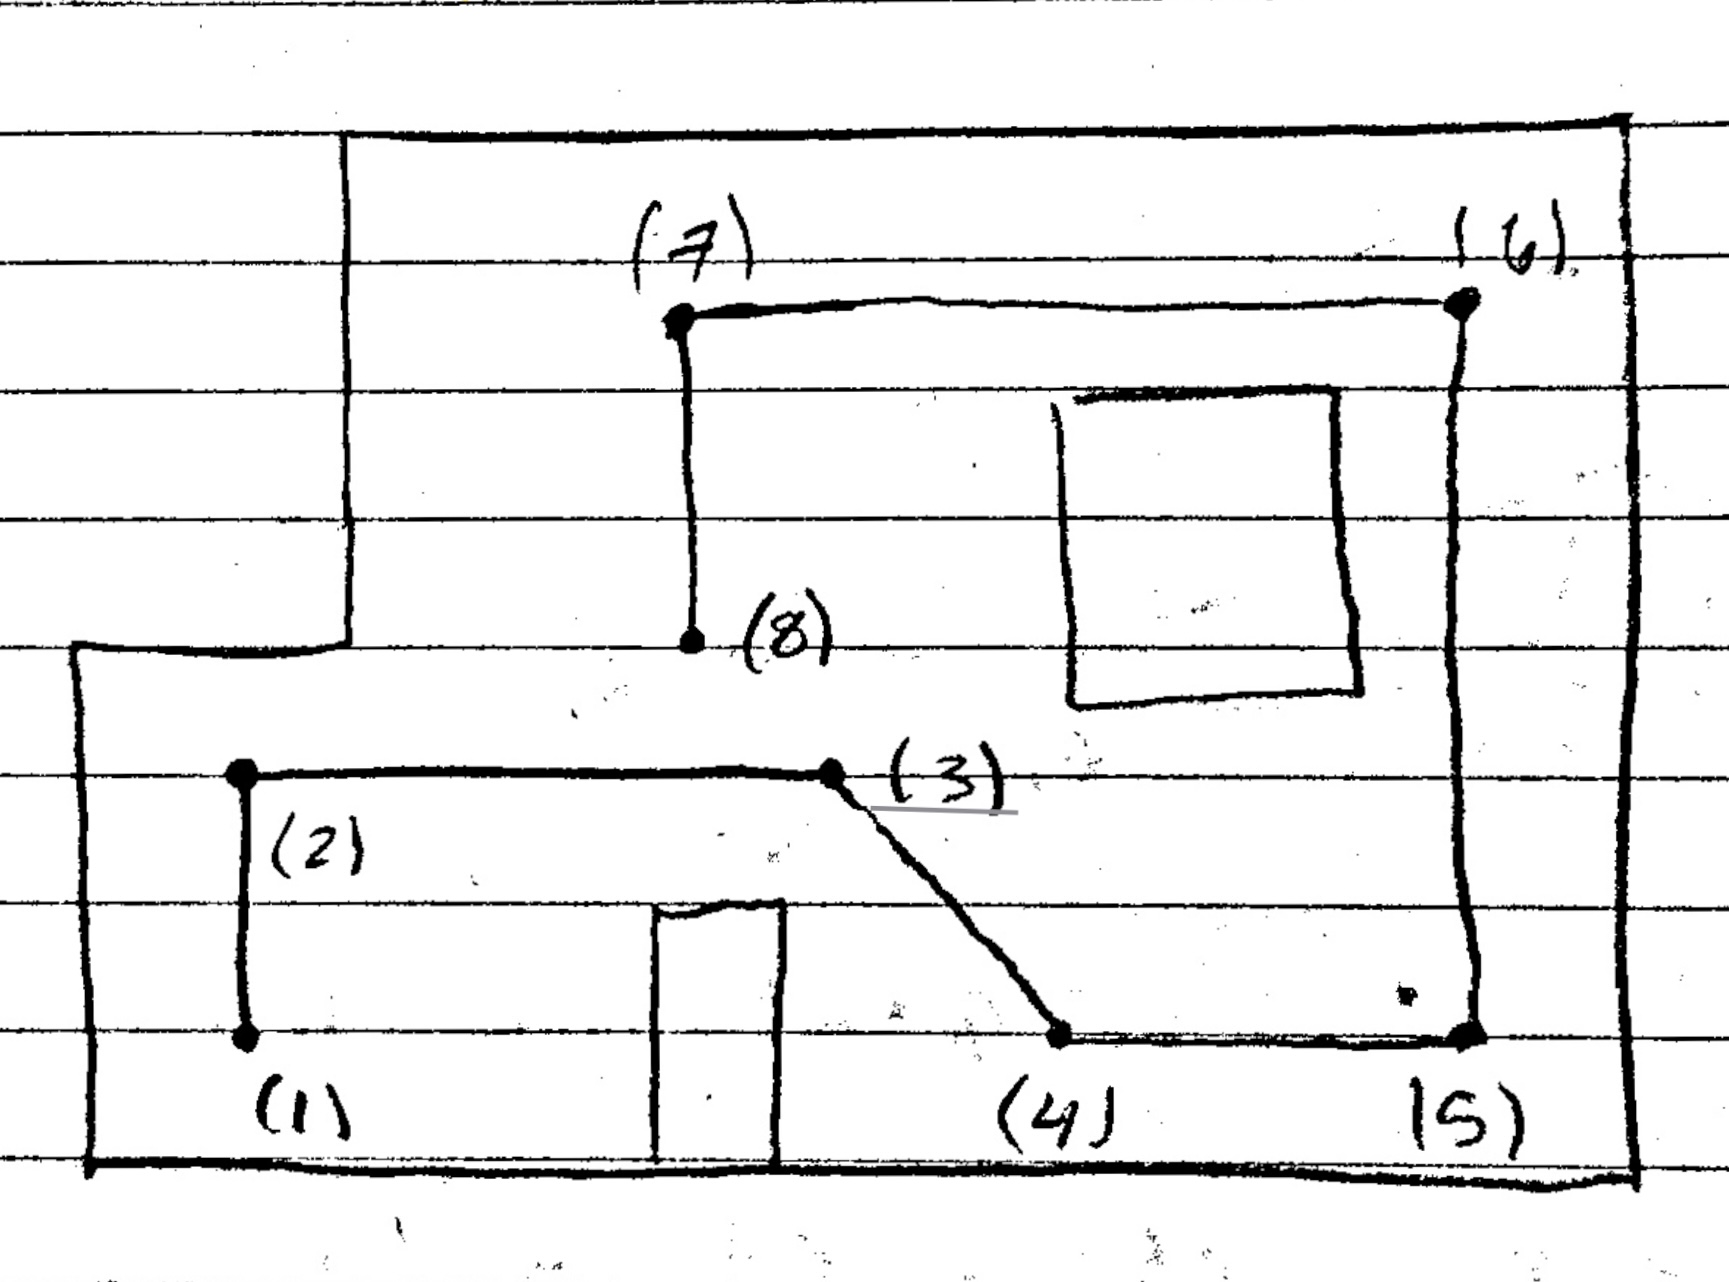 (7) (6)
(8)
(3)
(2)
(1) (4) (5)